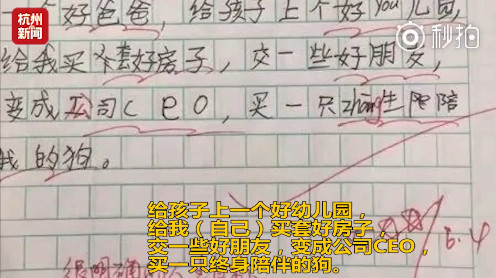 杭州新闻
秒拍
一个好爸爸，给孩子上个好you儿园，
给我买套好房子，交一些好朋友，
变成公司ceo，买一只zhong生陪
我的狗。
6.4
给孩子上一个好幼儿园，
给我（自己）买套好房子，
交一些好朋友，变成公司CEO，
买一只终身陪伴的狗。
很明确